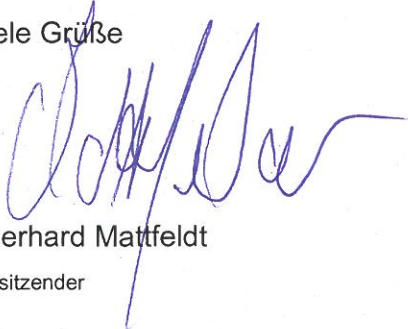 ele Grüße
erhard Mattfeldt
sitzender